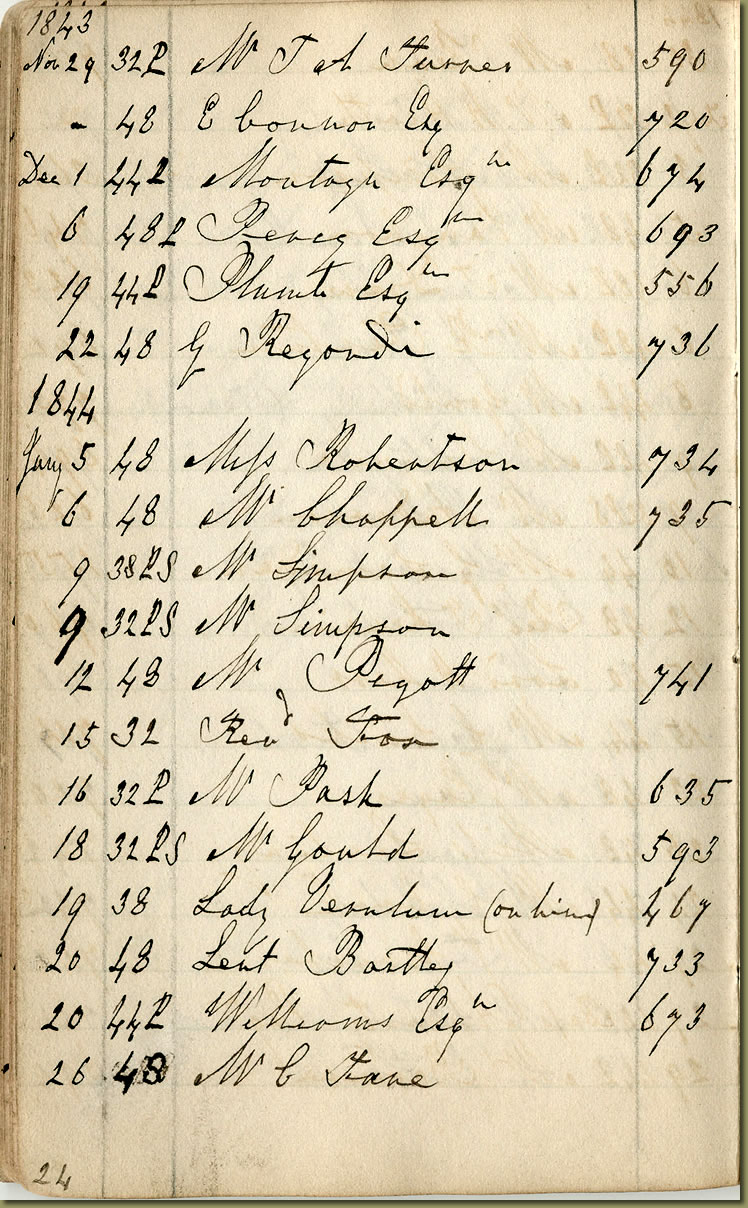 1843
Nov 29 32P Mr T A Turner 590
- 48 E Connor Esq 720
Dec 1 44P Montagu Esqre 674
6 48P Esqre 693
19 44P Esqre 556
22 48 G Regondi 736
1844
Jany 5 48 Miss Robertson 734
6 48 Mr Chappell 735
9 38PS Mr Simpson
9 32PS Mr Simpson
12 48 Mr Pigott 741
15 32 Revd Fox
16 32P Mr Pask 635
18 32PS Mr Gould 593
19 38 Lady Verulum (on hire) 267
20 48 Leut Bartley 733
20 44P Williams Esqre 673
26 48 Mr C Fane
24